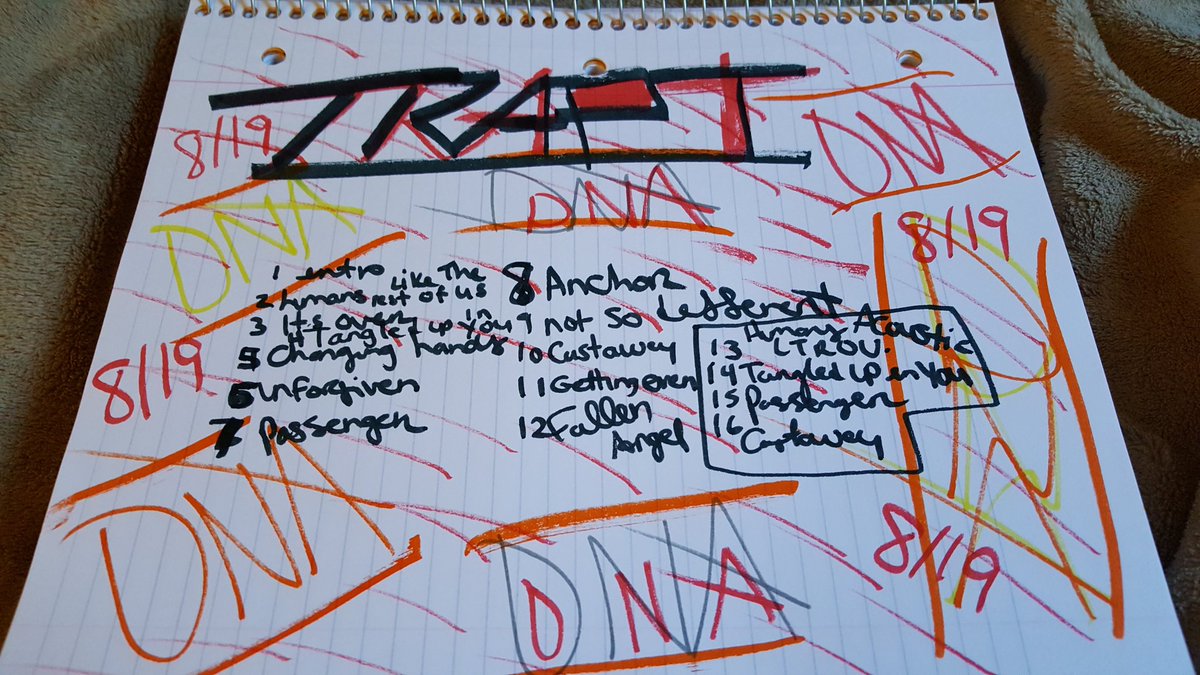 TRAPT
8/19
DNA
DNA
DNA
8/19
1 entro
2 humans Like The
rest of us
3 It's over
4 Tangled up in you
5 Changing hands
6 Unforgiven
7 Passenger
8 Anchor
9 not so
10 Castaway
11 Getting even
12 Fallen
Angel
Acoustic
13 Humans
LTROU.
14 Tangled up in You
15 Passenger
16
Castaway
8/19
DNA
DNA
DNA
DNA
8/19